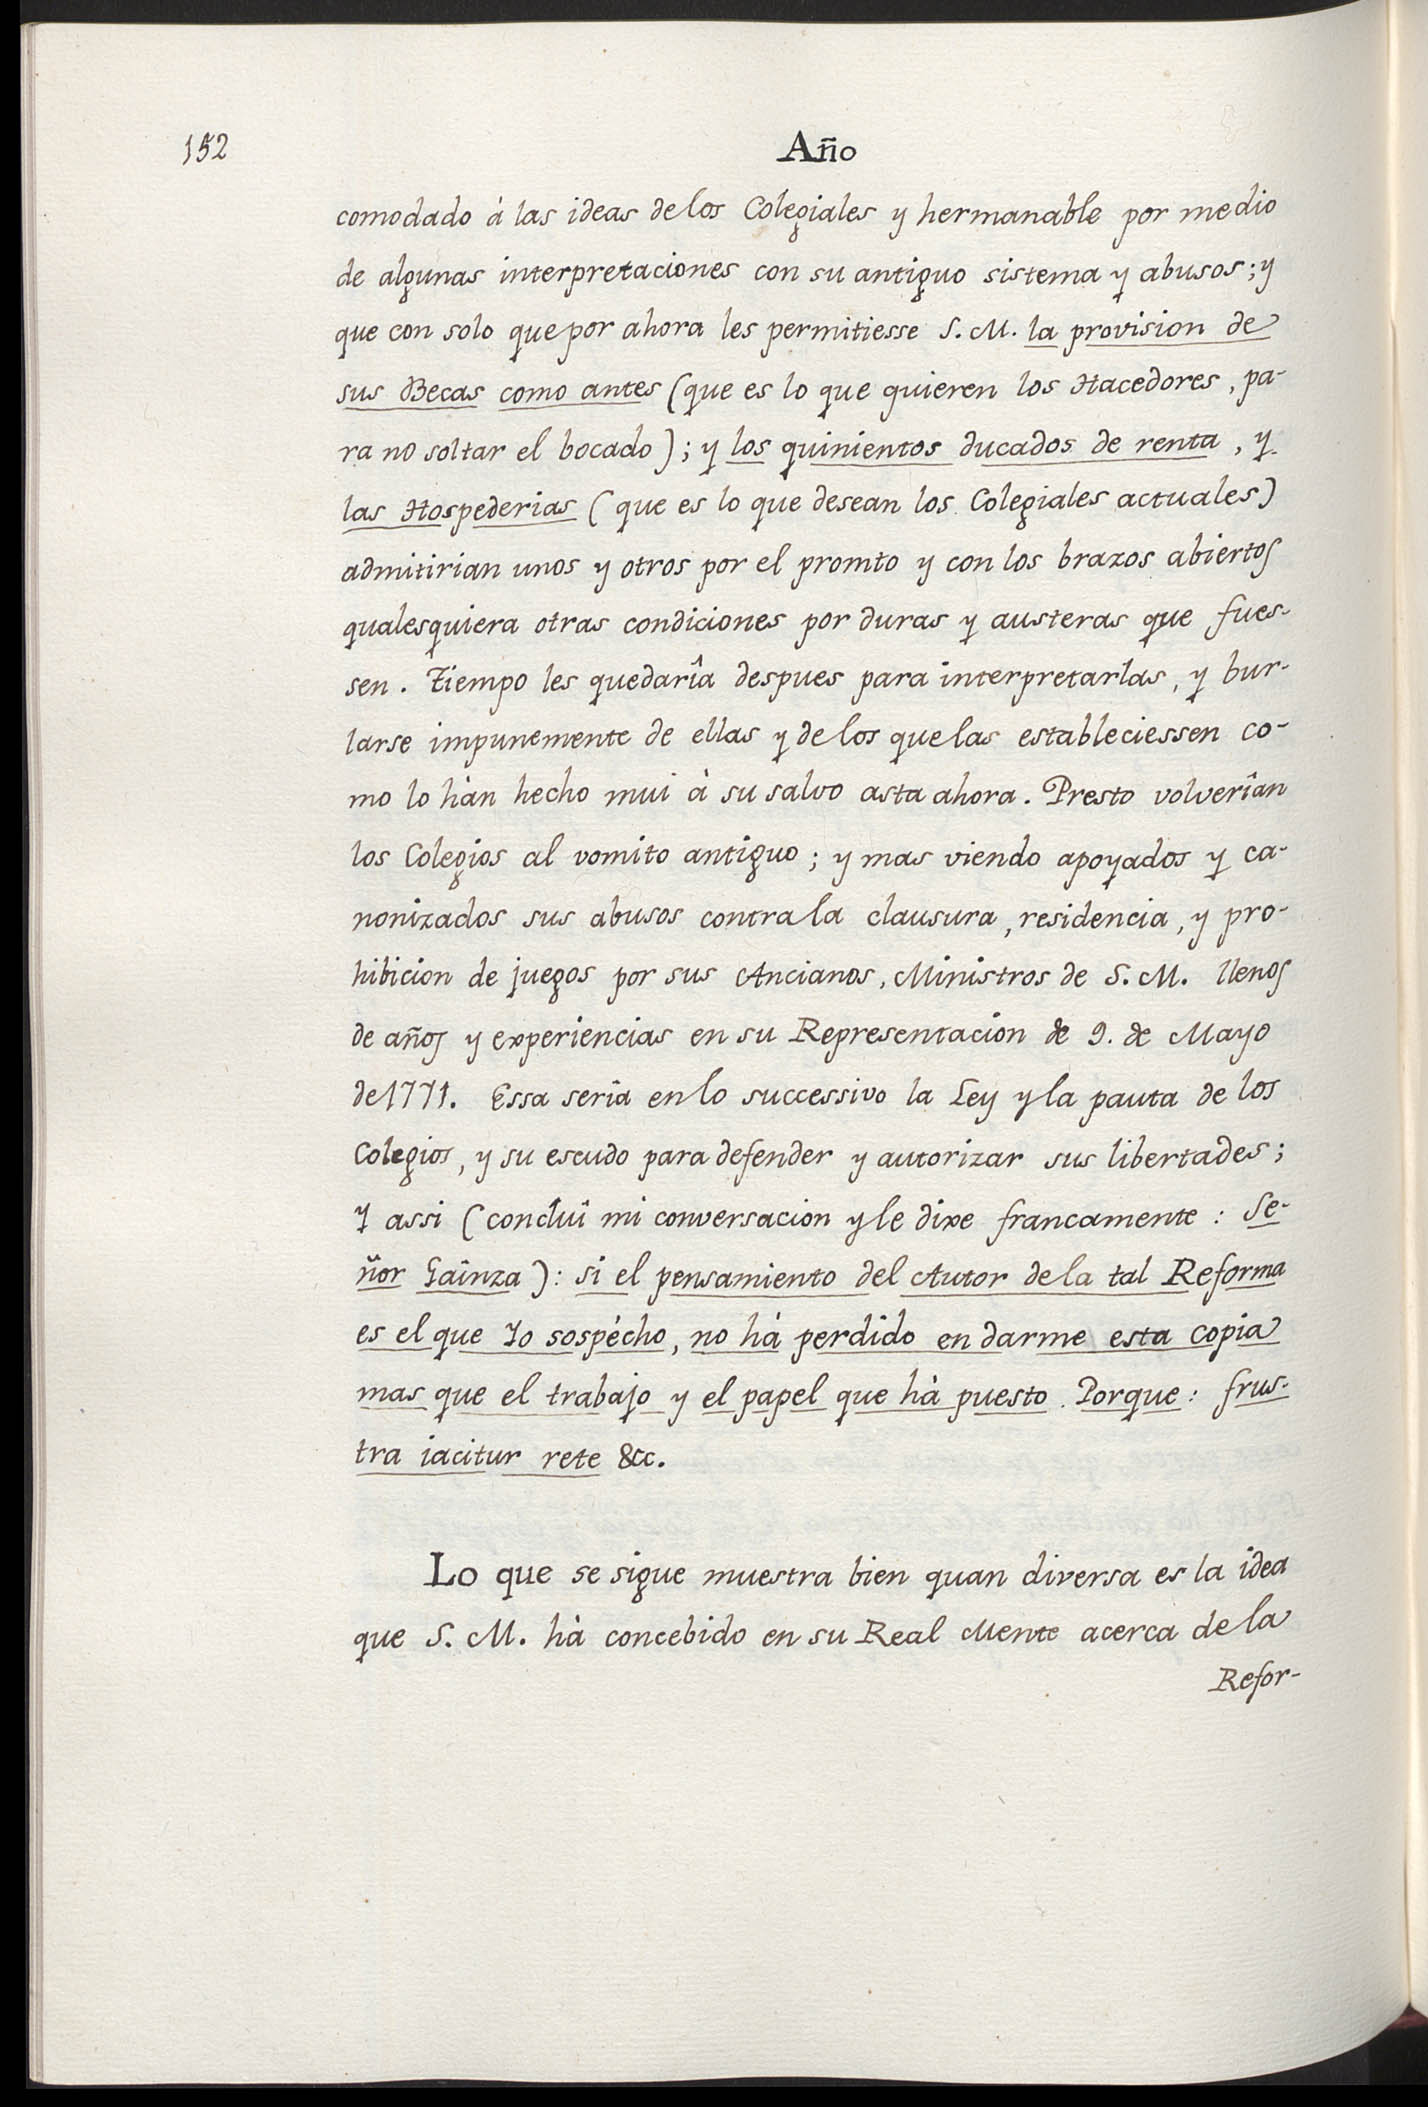 152
Año
comodado à las ideas de los Colegiales y hermanable por medio
de algunas interpretaciones con su antiguo sistema y abusos; y
que con solo que por ahora les permitiesse S. M. la provision de
sus Becas como antes (que es lo que quieren los Hacedores, pa-
ra no soltar el bocado); y los quinientos ducados de renta, y
las Hospederias (que es lo que desean los Colegiales actuales)
admitirian unos y otros por el promto y con los brazos abiertos
qualesquiera otras condiciones por duras y austeras que fues-
sen. Tiempo les quedarîa despues para interpretarlas, y bur-
larse impunemente de ellas y de los que las estableciessen co-
mo lo hàn hecho mui à su salvo asta ahora. Presto volverîan
los Colegios al vomito antiguo; y mas viendo apoyados y ca-
nonizados sus abusos contra la clausura, residencia, y pro-
hibicion de juegos por sus Ancianos, Ministros de S. M. llenos
de años y experiencias en su Representacion de 9. de Mayo
de 1771. Essa serîa en lo successivo la Ley y la pauta de los
Colegios, y su escudo para defender y autorizar sus libertades;
Y assi (concluî mi conversacion y le dixe francamente: Se-
ñor Gaînza): si el pensamiento del Autor de la tal Reforma
es el que Yo sospècho, no hà perdido en darme esta copia
mas que el trabajo y el papel que hà puesto. Porque: frus-
tra iacitur rete &c.
Lo que se sigue muestra bien quan diversa es la idea
que S. M. hà concebido en su Real Mente acerca de la
Refor-